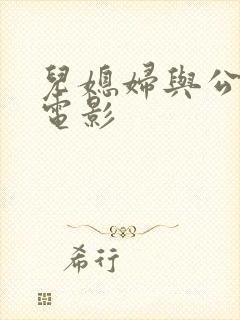 兒媳婦與公
電影
希行